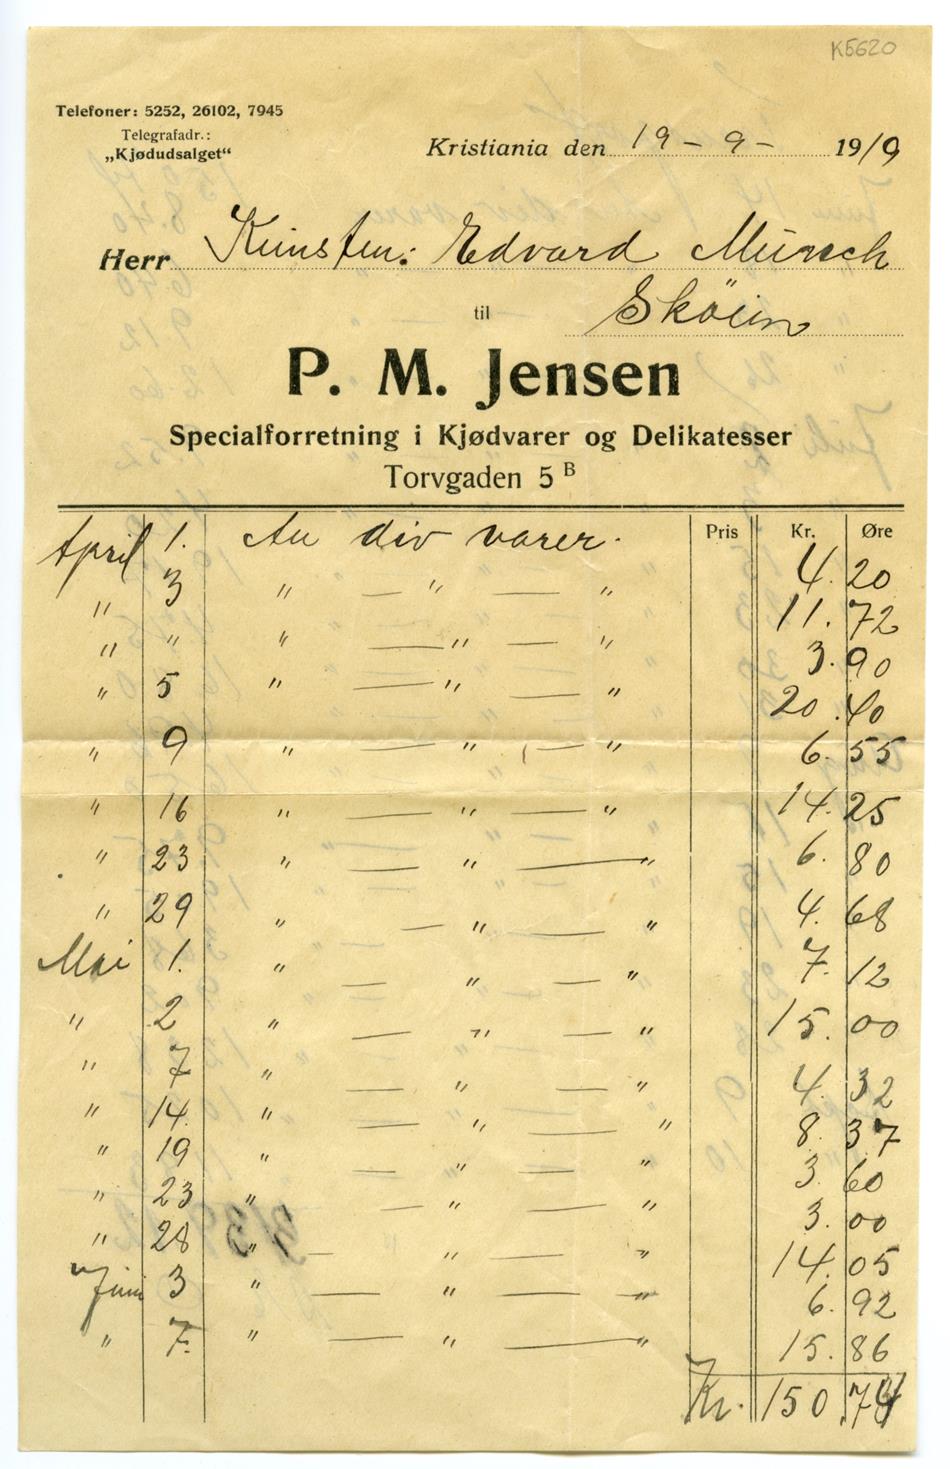 K5620
Telefoner: 5252, 26102, 7945
Telegrafadr.:
„Kjødudsalget“
Kristiania den 19 - 9 - 1919
Herr Kunstm: Edvard Munch
til Sköien
P. M. Jensen
Specialforretning i Kjødvarer og Delikatesser
Torvgaden 5 B
Pris Kr. Øre
April 1. An div varer. 4. 20
" 3 " — " — " 11. 72
" " " — " — " 3. 90
" 5 " — " — " 20. 40
" 9 " — " — " 6. 55
" 16 " — " — " 14. 25
" 23 " — " — " 6. 80
" 29 " — " — " 4. 68
Mai 1. " — " — " 7. 12
" 2 " — " — " 15. 00
" 7 " — " — " 4. 32
" 14. " — " — " 8. 37
" 19 " — " — " 3. 60
" 23 " — " — " 3. 00
" 28 " — " — " 14. 05
" Juni 3 " — " — " 6. 92
" 7. " — " — " 15. 86
Kr. 150.74